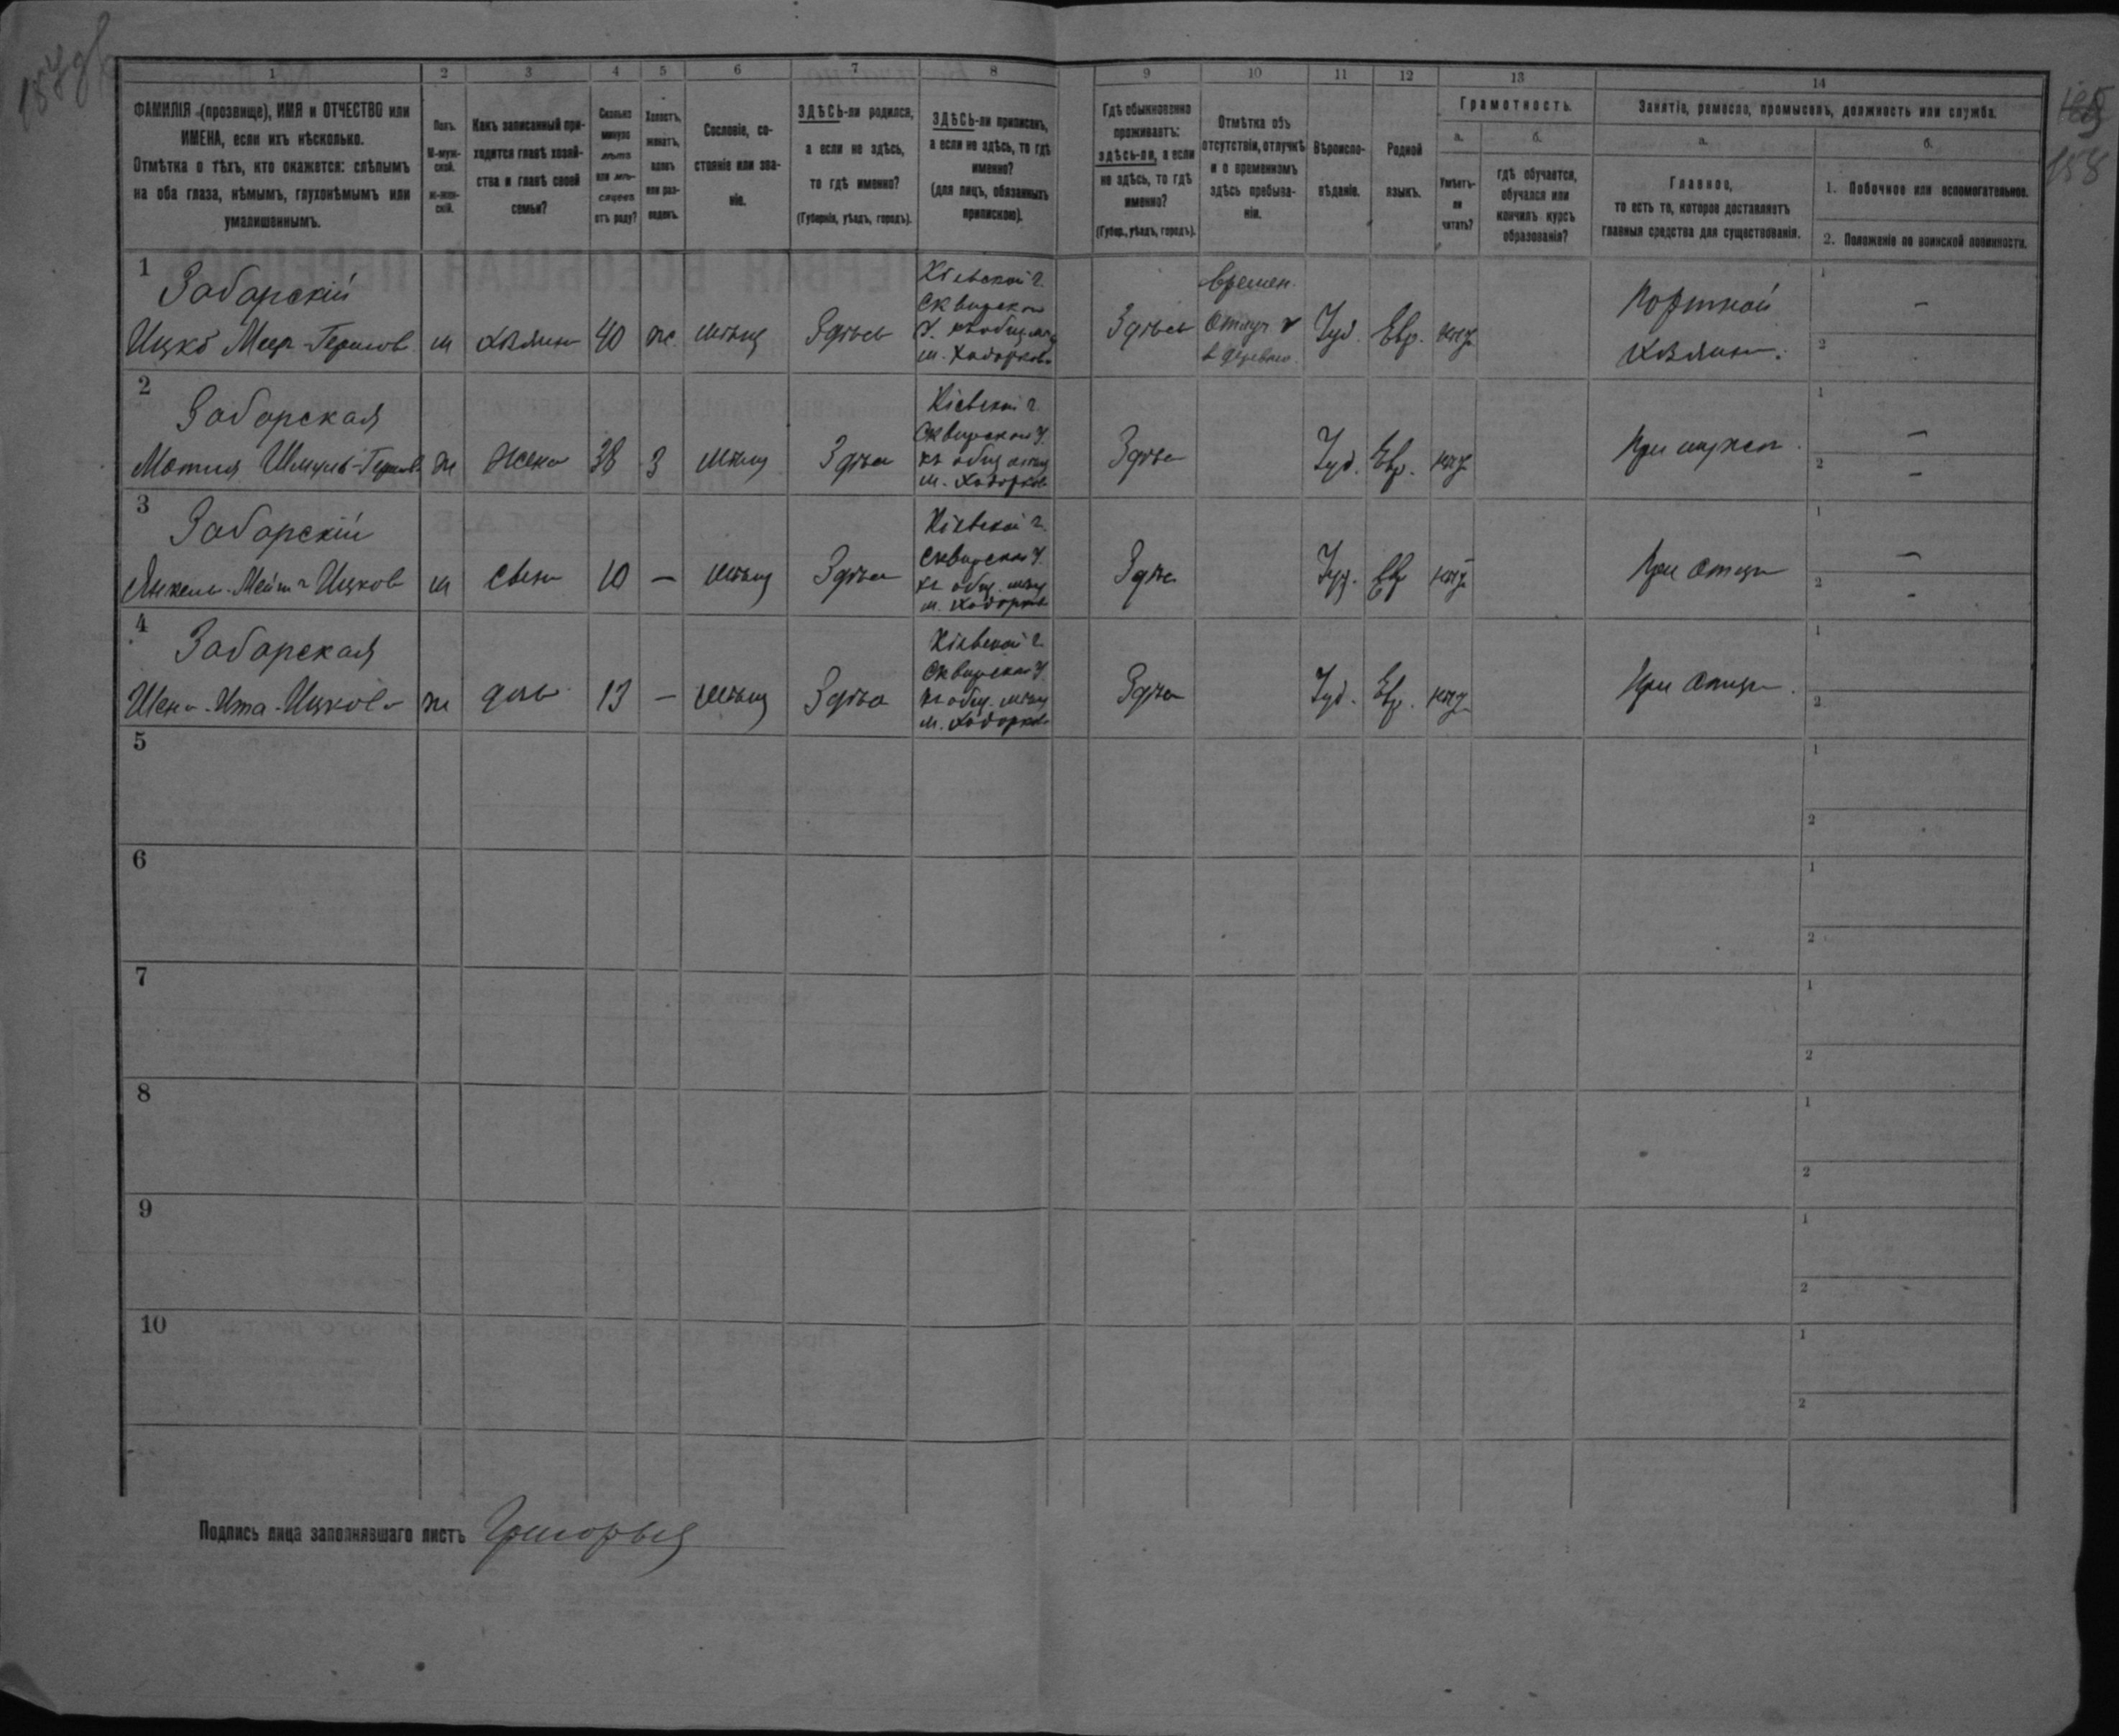 158
1 2 3 4 5 6 7 8 9 10 11 12 13 14
ФАМИЛІЯ (прозвище), ИМЯ и ОТЧЕСТВО или
ИМЕНА, если ихъ нѣсколько.
Отмѣтка о тѣхъ, кто окажется: слѣпымъ
на оба глаза, нѣмымъ, глухонѣмымъ или
умалишеннымъ.
Полъ.
М-муж-
ской.
ж-жен-
скій.
Какъ записанный при-
ходится главѣ хозяй-
ства и главѣ своей
семьи?
Сколько
минуло
лѣтъ
или мѣ-
сяцевъ
отъ роду?
Холостъ,
женатъ,
вдовъ
или раз-
веденъ.
Сословіе, со-
стояніе или зва-
ніе.
ЗДѢСЬ-ли родился,
а если не здѣсь,
то гдѣ именно?
(Губернія, уѣздъ, городъ).
ЗДѢСЬ-ли приписанъ,
а если не здѣсь, то гдѣ
именно?
(для лицъ, обязанныхъ
припискою).
Гдѣ обыкновенно
проживаетъ:
здѣсь-ли, а если
не здѣсь, то гдѣ
именно?
(Губер., уѣздъ, городъ).
Отмѣтка объ
отсутствіи, отлучкѣ
и о временномъ
здѣсь пребыва-
ніи.
Вѣроиспо-
вѣданіе.
Родной
языкъ.
Грамотность.
а.
Умѣетъ-
ли
читать?
б.
гдѣ обучается,
обучался или
кончилъ курсъ
образованія?
Занятіе, ремесло, промыселъ, должность или служба.
а.
Главное,
то есть то, которое доставляетъ
главныя средства для существованія.
б.
1. Побочное или вспомогательное.
2. Положеніе по воинской повинности.
1
Заборскій
Ицко Меер-Гершов м хозяин 40 ж. мѣщ Здѣсь
Кіевской г.
Сквирской
У. къ общ мѣщ
м. Ходорков
Здѣсь
времен.
отлуч
в деревню.
Іуд. Евр. нѣт
Портной
хозяин.
1 —
2
2
Заборская
Мотия Шмуль-Гершов ж жена 38 з мѣщ Здѣсь
Кіевской г.
Сквирской У.
къ общ мѣщ
м. Ходорков
Здѣсь Іуд. Евр. нѣт При мужѣ.
1 —
2 —
3
Заборскій
Янкель-Ицков м сын 10 — мѣщ Здѣсь
Кіевской г.
Сквирской У.
къ общ. мѣщ
м. Ходорков
Здѣсь Іуд. Евр нѣт При отцѣ
1 —
2 -
4
Заборская
Шена-Ита-Ицкова ж дочь 13 — мѣщ Здѣсь
Кіевской г.
Сквирской У.
къ общ. мѣщ
м. Ходорков
Здѣсь Іуд. Евр. нѣт При отцѣ.
1
2
5
1
2
6
1
2
7
1
2
8
1
2
9
1
2
10
1
2
Подпись лица заполнявшаго листъ